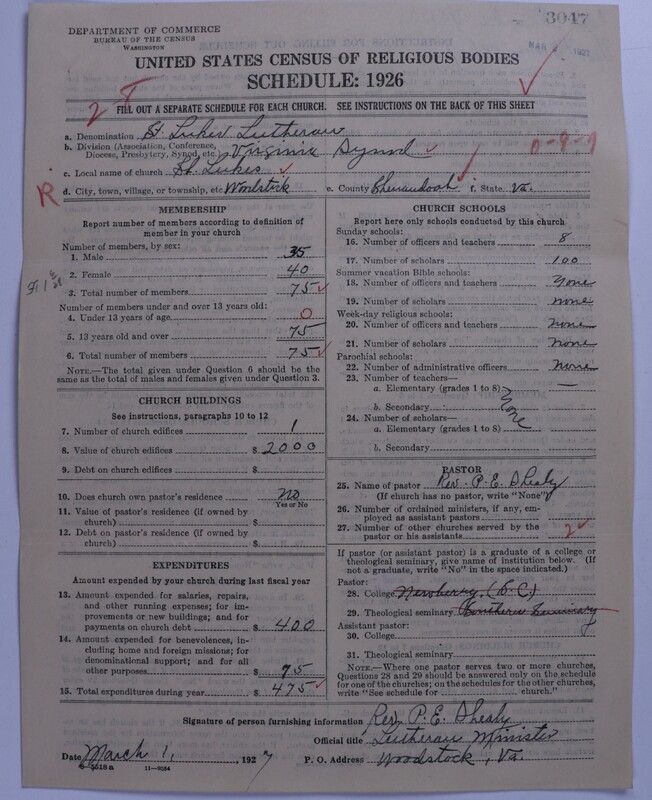 3047
DEPARTMENT OF COMMERCE
BUREAU OF THE CENSUS
WASHINGTON
UNITED STATES CENSUS OF RELIGIOUS BODIES
SCHEDULE: 1926
FILL OUT A SEPARATE SCHEDULE FOR EACH CHURCH. SEE INSTRUCTIONS ON THE BACK OF THIS SHEET
a. Denomination St. Lukes Lutheran
b. Division (Association, Conference, Diocese, Presbytery, Synod, etc.) Virginia Synod
c. Local name of church St. Lukes
R d. City, town, village, or township, etc. Woodstock e. County Shenandoah f. State Va.
MEMBERSHIP
Report number of members according to definition of
member in your church
Number of members, by sex:
1. Male 35
2. Female 40
3. Total number of members 75
Number of members under and over 13 years old:
4. Under 13 years of age 0
5. 13 years old and over 75
6. Total number of members 75
NOTE.—The total given under Question 6 should be
same as the total of males and females given under Question 3.
CHURCH BUILDINGS
See instructions, paragraphs 10 to 12
7. Number of church edifices 1
8. Value of church edifices $ 2000
9. Debt on church edifices $
10. Does church own pastor's residence No
Yes or No
11. Value of pastor's residence (if owned by
church) $
12. Debt on pastor's residence (if owned by
church) $
EXPENDITURES
Amount expended by your church during last fiscal year
13. Amount expended for salaries, repairs,
and other running expenses; for im-
provements or new buildings; and for
payments on church debt $ 400
14. Amount expended for benevolences, in-
cluding home and foreign missions; for
denominational support; and for all
other purposes $ 75
15. Total expenditures during year $ 475
CHURCH SCHOOLS
Report here only schools conducted by this church
Sunday schools:
16. Number of officers and teachers 8
17. Number of scholars 100
Summer vacation Bible schools:
18. Number of officers and teachers None
19. Number of scholars none
Week-day religious schools:
20. Number of officers and teachers none
21. Number of scholars none
Parochial schools:
22. Number of administrative officers none
23. Number of teachers—
a. Elementary (grades 1 to 8) —
b. Secondary
24. Number of scholars— None
a. Elementary (grades 1 to 8)
b. Secondary
PASTOR
25. Name of pastor Rev. P. E. Shealy
(If church has no pastor, write "None")
26. Number of ordained ministers, if any, em-
ployed as assistant pastors
27. Number of other churches served by the
pastor or his assistants 2
If pastor (or assistant pastor) is a graduate of a college or
theological seminary, give name of institution below. (If
not a graduate, write "No" in the space indicated.)
Pastor:
28. College Newberry, (S.C.)
29. Theological seminary Southern Seminary
Assistant pastor:
30. College
31. Theological seminary
NOTE.—Where one pastor serves two or more churches,
Questions 28 and 29 should be answered only on the schedule
for one of the churches; on the schedules for the other churches,
write "See schedule for ______ church."
Signature of person furnishing information Rev. P. E. Shealy
Official title Lutheran Minister
Date March 1, 1927 P. O. Address Woodstock, Va.
11—9084